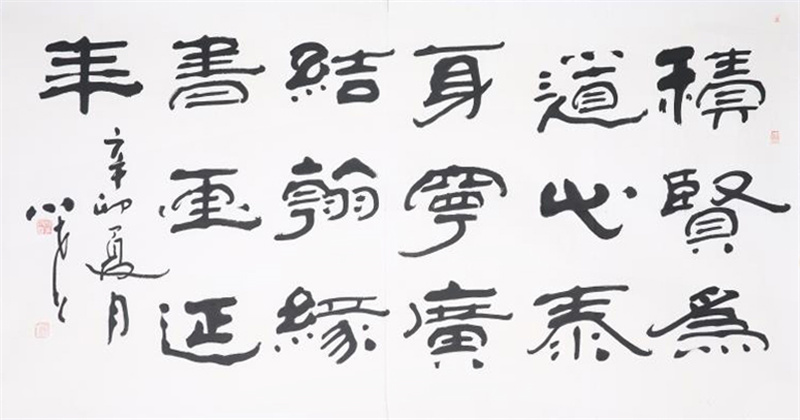 積賢為
道心泰
身寧廣
結翰緣
書画延
年
辛卯夏月